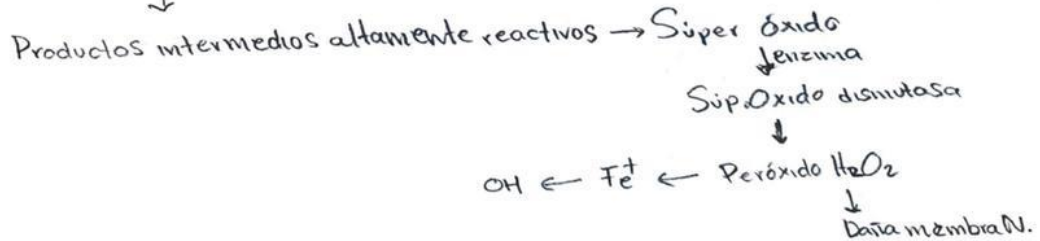 Productos intermedios altamente reactivos → Súper óxido
↓ enzima
Súp.Oxido dismutasa
↓
OH ← Fe⁺ ← Peróxido H₂O₂
↓
Daña membraN.